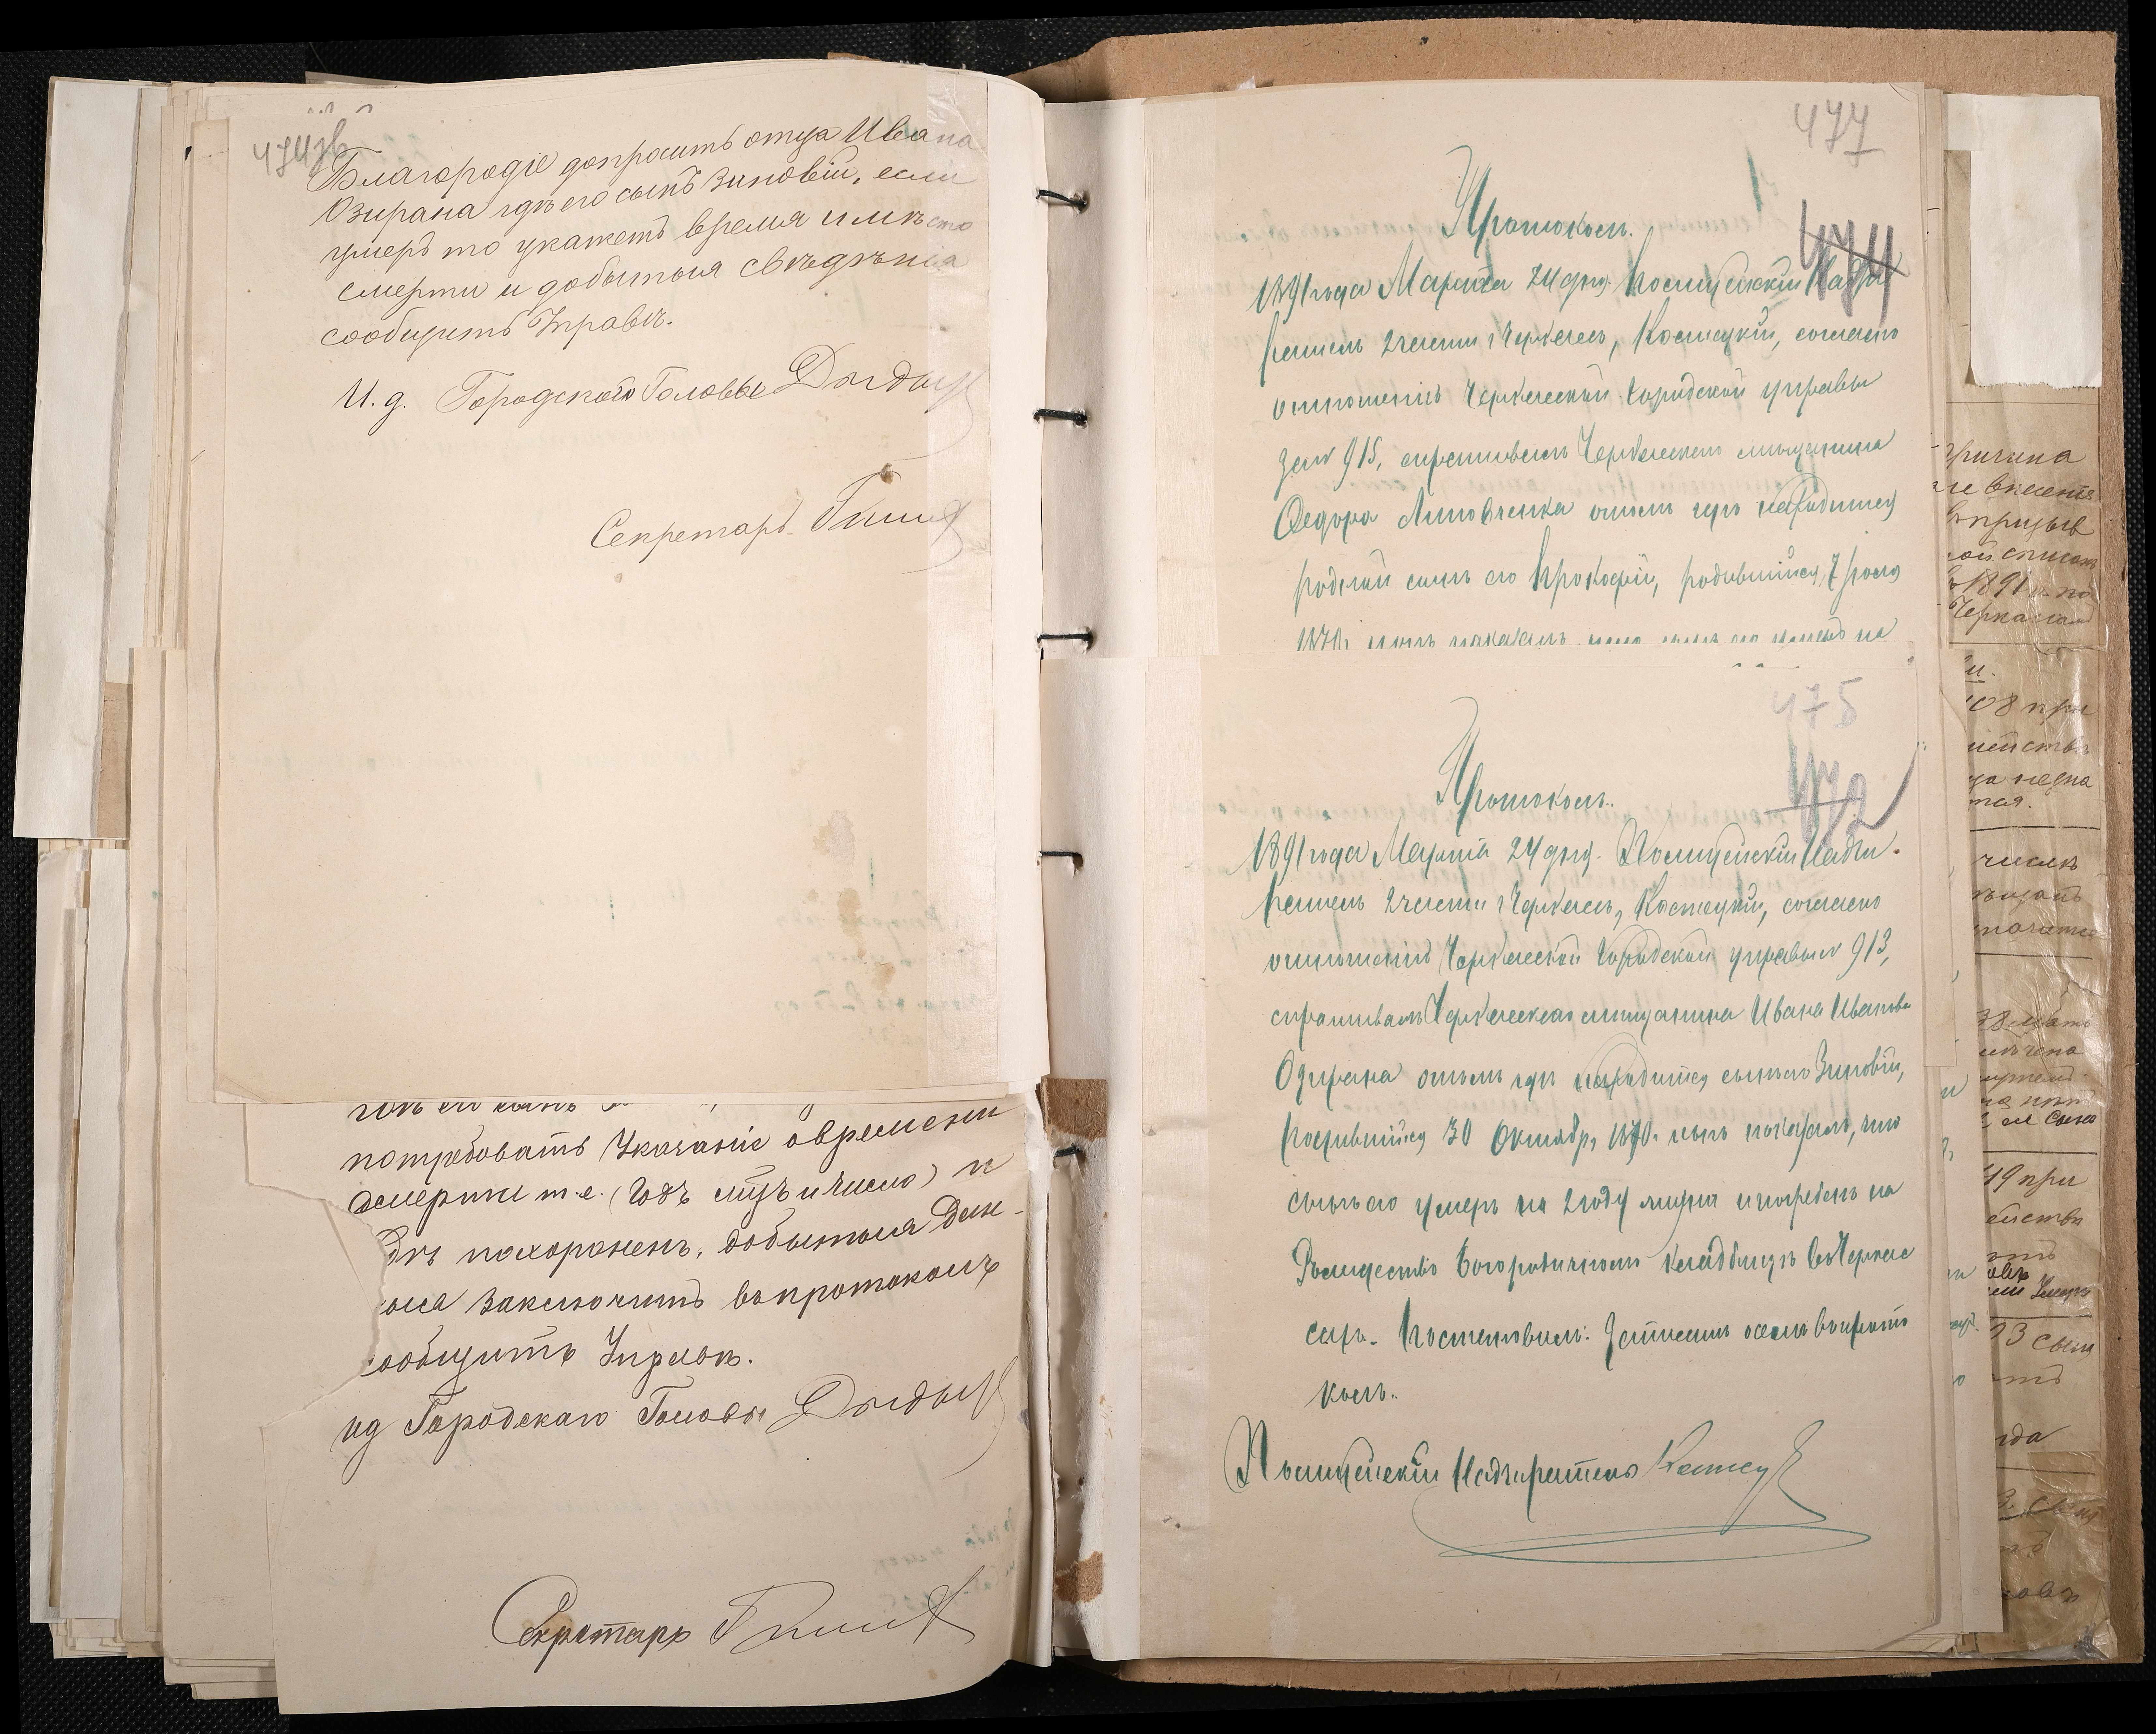 474зв
Благородіе допросить отца Ивана
Озирана гдѣ его сынъ Зиновій, если
умеръ то укажетъ время и мѣсто
смерти и добытыя свѣдѣнія
сообщить Управѣ.
И. д. Городского Головы
Секретарь
потребовать указаніе о времени
смерти т.е. (годъ мцъ и число) и
гдѣ похороненъ, добытыя дан-
ныя заключить въ протоколъ
сообщить Управѣ.
ид Городскаго Головы
Секретарь
477
474
Протоколъ.
1891 года Марта 24 дня. Полицейскій Надзи
ратель 2 части г Черкассъ, Костецкій, согласно
отношенія Черкасской городской управы
за № 915, спрашивалъ Черкасскаго мѣщанина
Федора Липовченка о томъ гдѣ находится
родной сынъ его Прокофій, родившійся 7
1870г.
475
472
Протоколъ.
1891 года Марта 24 дня. Полицейскій Надзи-
ратель 2 части г Черкассъ, Костецкій, согласно
отношенія Черкасской городской управы № 913,
спрашивалъ Черкасскаго мѣщанина Ивана Иванова
Озирана о томъ гдѣ находится сынъ его Зиновій,
родившійся 30 Октября 1870г. нынѣ показалъ, что
сынъ его умеръ на 2 году жизни и погребенъ на
Рождество Богородичномъ кладбищѣ въ Черкас
сахъ. Постановилъ: Записать о семъ въ прото
колъ.
Полицейскій Надзиратель
причина
не внесенія
въ призыв
ной списокъ
1891 г. по
Черкассамъ
108 при
числѣ
49 при
93 сынъ